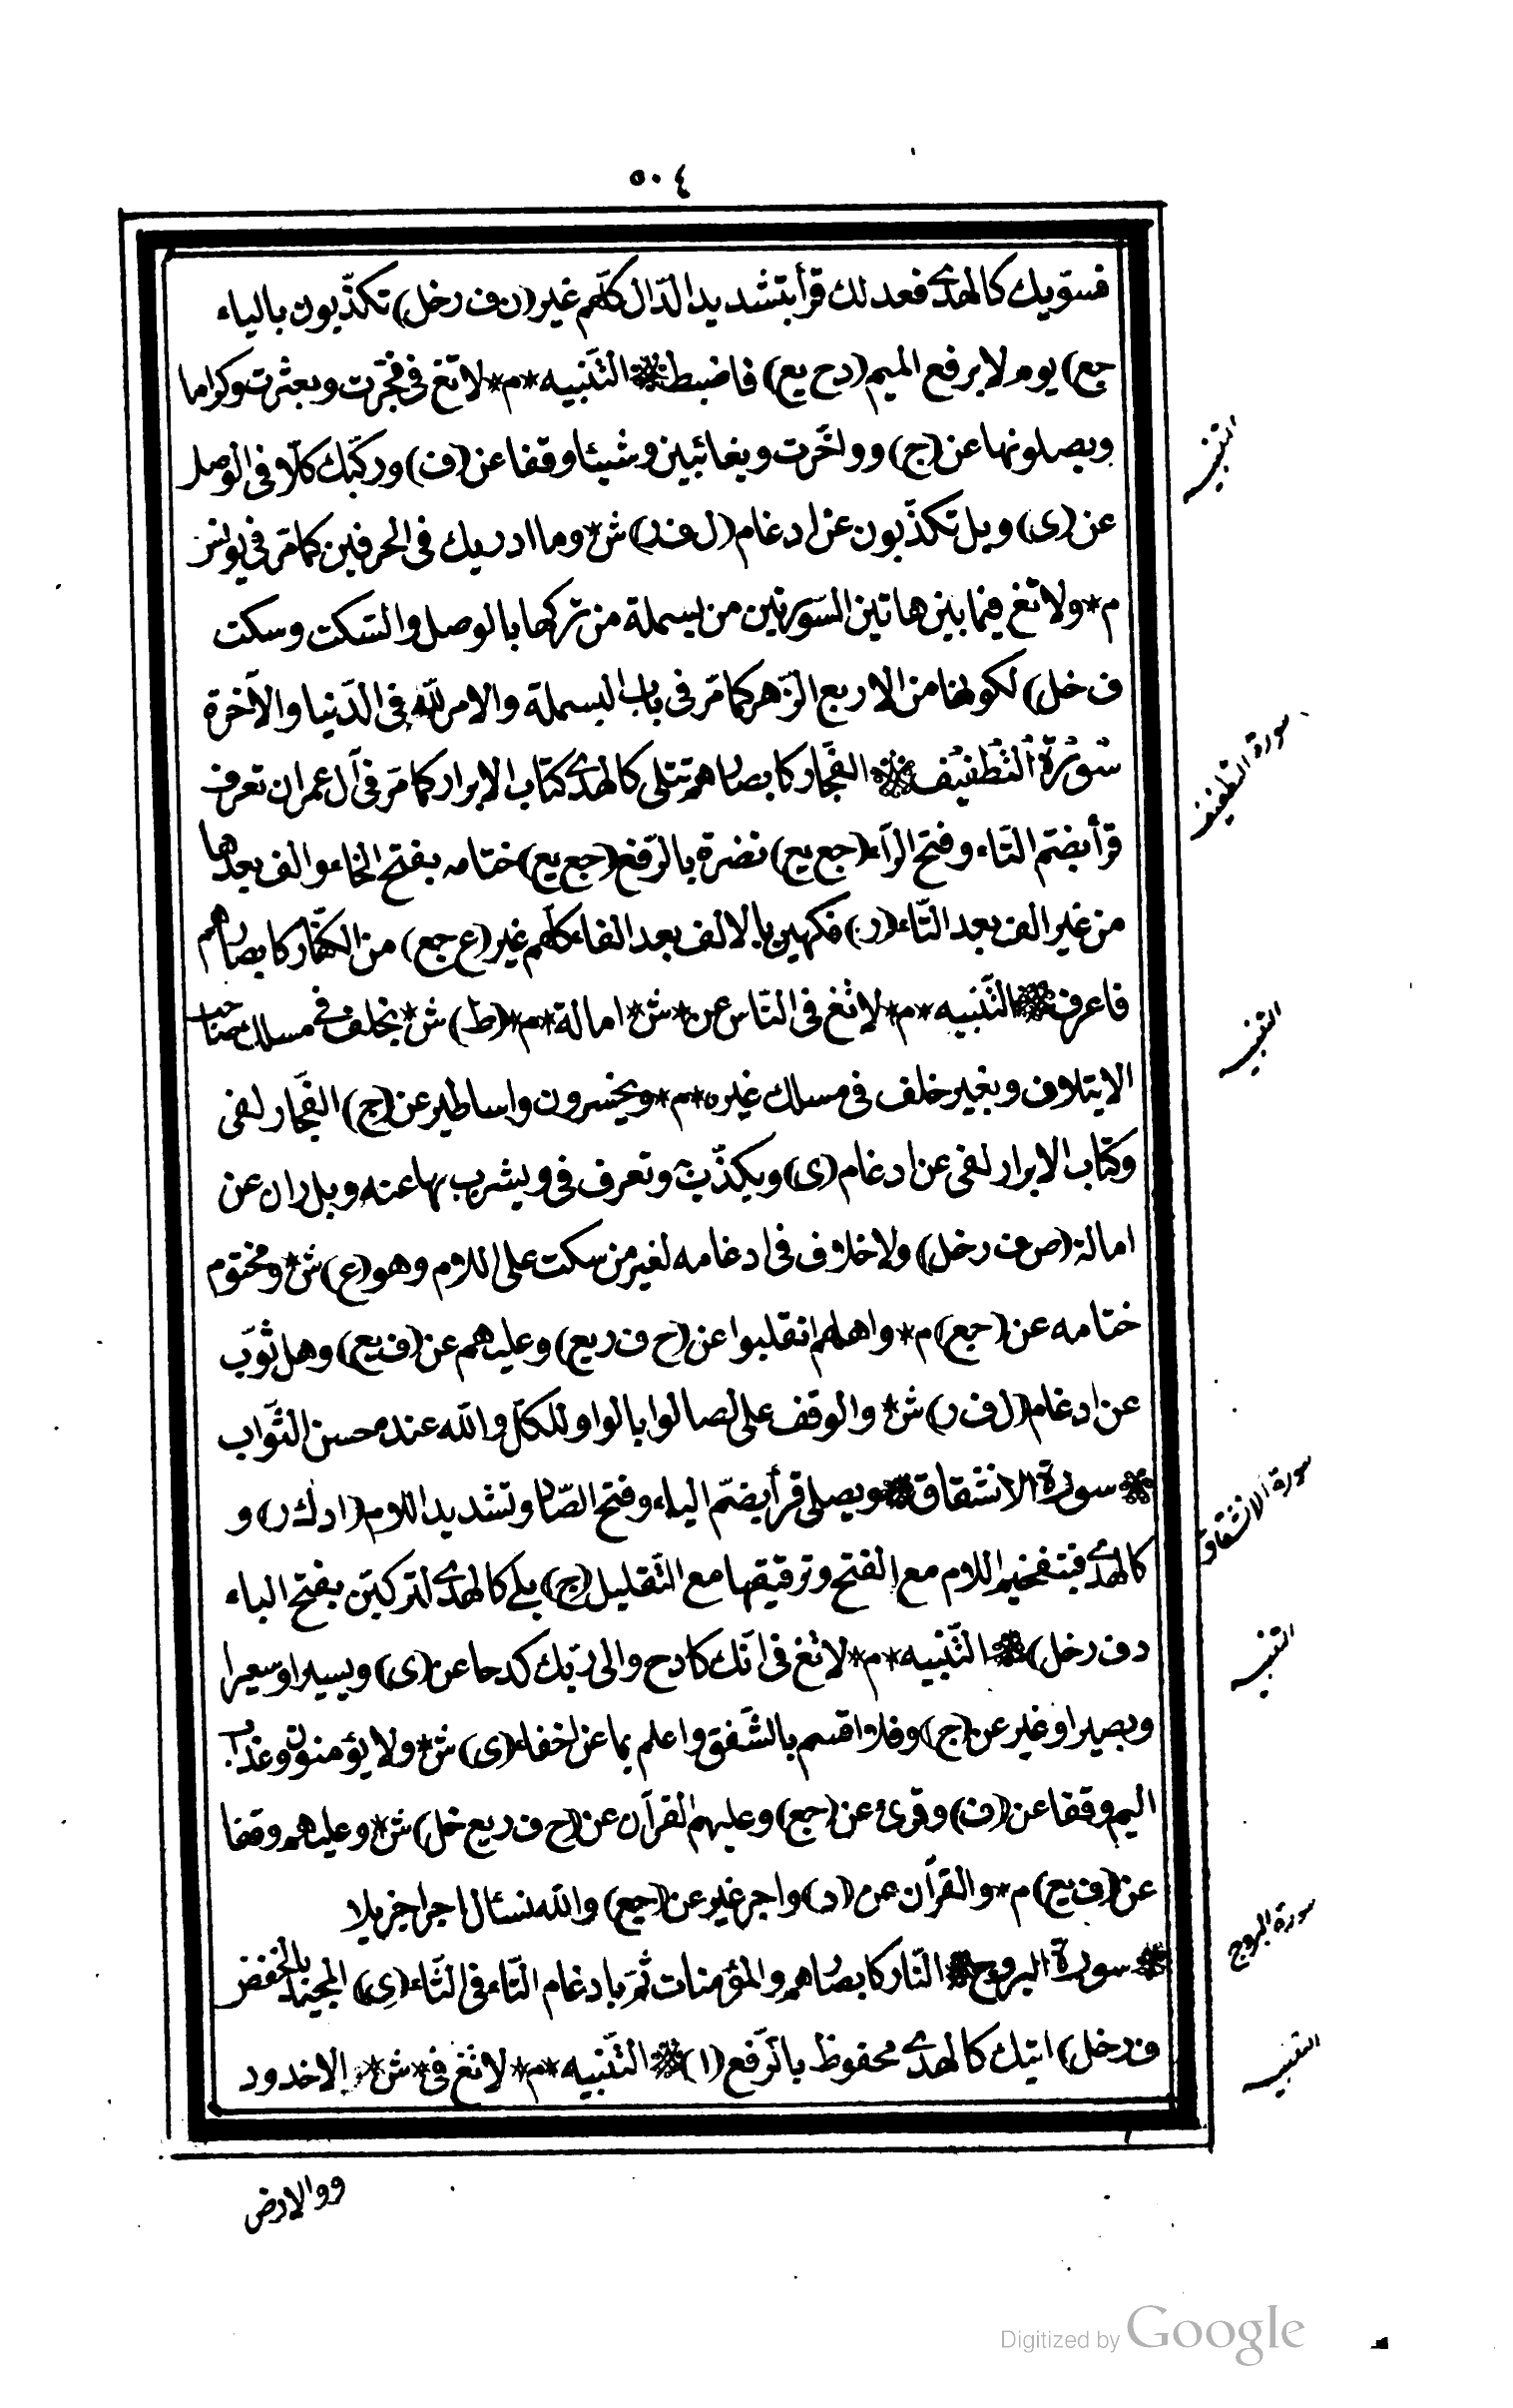 ٥٠٤
فسوّيك كالهدى فعدلك قرأ بتشديد الدّال كلّهم غير (ن ف ر خل) تكذّبون بالياء
جع) يوم لا برفع الميم (دح يع) فاضبط التّنبيه *م* لا تغ في فجّرت وبعثرت وكراما
ويصلونها عن (ج) وواخّرت وبغائبين وشيئا وقفا عن (ف) وركّبك كلّا في الوصل
عن (ى) وبل تكذّبون عن ادغام (ل ف ر) ش* وما ادريك في الحرفين كما مرّ في يونس
م* ولا تغ فيما بين هاتين السّورتين من بسملة من تركها بالوصل والسّكت وسكت
ف خل) لكونها من الاربع الزّهر كما مرّ في باب البسملة والامر للّه في الدّنيا والآخرة
سورة التطفيف الفجّار كابصارهم تتلى كالهدى كتاب الابرار كما مرّ في آل عمران تعرف
قرأ بضمّ التّاء وفتح الرّاء (جع يع) نضرة بالرّفع (جع يع) ختامه بفتح الخاء والف بعدها
من غير الف بعد التّاء (ر) فكهين بالالف بعد الفاء كلّهم غير (ع جع) من الكفّار كابصارهم
فاعرف التّنبيه *م* لا تغ في النّاس عن *ش* امالة *م* (ط) ش* بخلف في مسلك صاحب
الايتلاف وبغير خلف في مسلك غيره *م* ويخسرون واساطير عن (ج) الفجّار لفي
وكتاب الابرار لفي عن ادغام (ى) ويكذّب وتعرف في ويشرب بها عنه وبل ران عن
امالة (ص ف ر خل) ولا خلاف في ادغامه لغير من سكت على اللام وهو (ع) ش* ومختوم
ختامه عن (جع) م* واهلهم انقلبوا عن (ح ف ر يع) وعليهم عن (ف يع) وهل ثوّب
عن ادغام (ل ف ر) ش* والوقف على لصالوا بالواو للكلّ واللّه عنده حسن الثّواب
سورة الانشقاق ويصلى قرأ بضمّ الياء وفتح الصّاد وتشديد اللام (ا د ك ر) و
كالهدى فبتفخيم اللام مع الفتح وترقيقها مع التّقليل (ج) بلى كالهدى لتركبنّ بفتح الباء
د ف ر خل) التّنبيه *م* لا تغ في انّك كادح والى ربّك كدحا عن (ى) ويسيرا وسعيرا
وبصيرا وغير عن (ج) وفلا اقسم بالشّفق واعلم بما عن اخفاء (ى) ش* ولا يؤمنون وعذاب
اليم وقفا عن (ف) وقرئ عن (جع) وعليهم القرآن عن (ح ف ر يع خل) ش* وعليهم وقفا
عن (ف يع) م* والقرآن عن (د) واجر غير عن (جع) واللّه نسئال اجرا جزيلا
سورة البروج النّار كابصارهم والمؤمنات ثمّ بادغام التّاء في الثّاء (ى) المجيد بالخفض
ف ر خل) اتيك كالهدى محفوظ بالرّفع (ا) التّنبيه *م* لا تغ في *ش* الاخدود
ووالارض
التنبيه
سورة التطفيف
التنبيه
سورة الانشقاق
التنبيه
سورة البروج
التنبيه
Digitized by Google